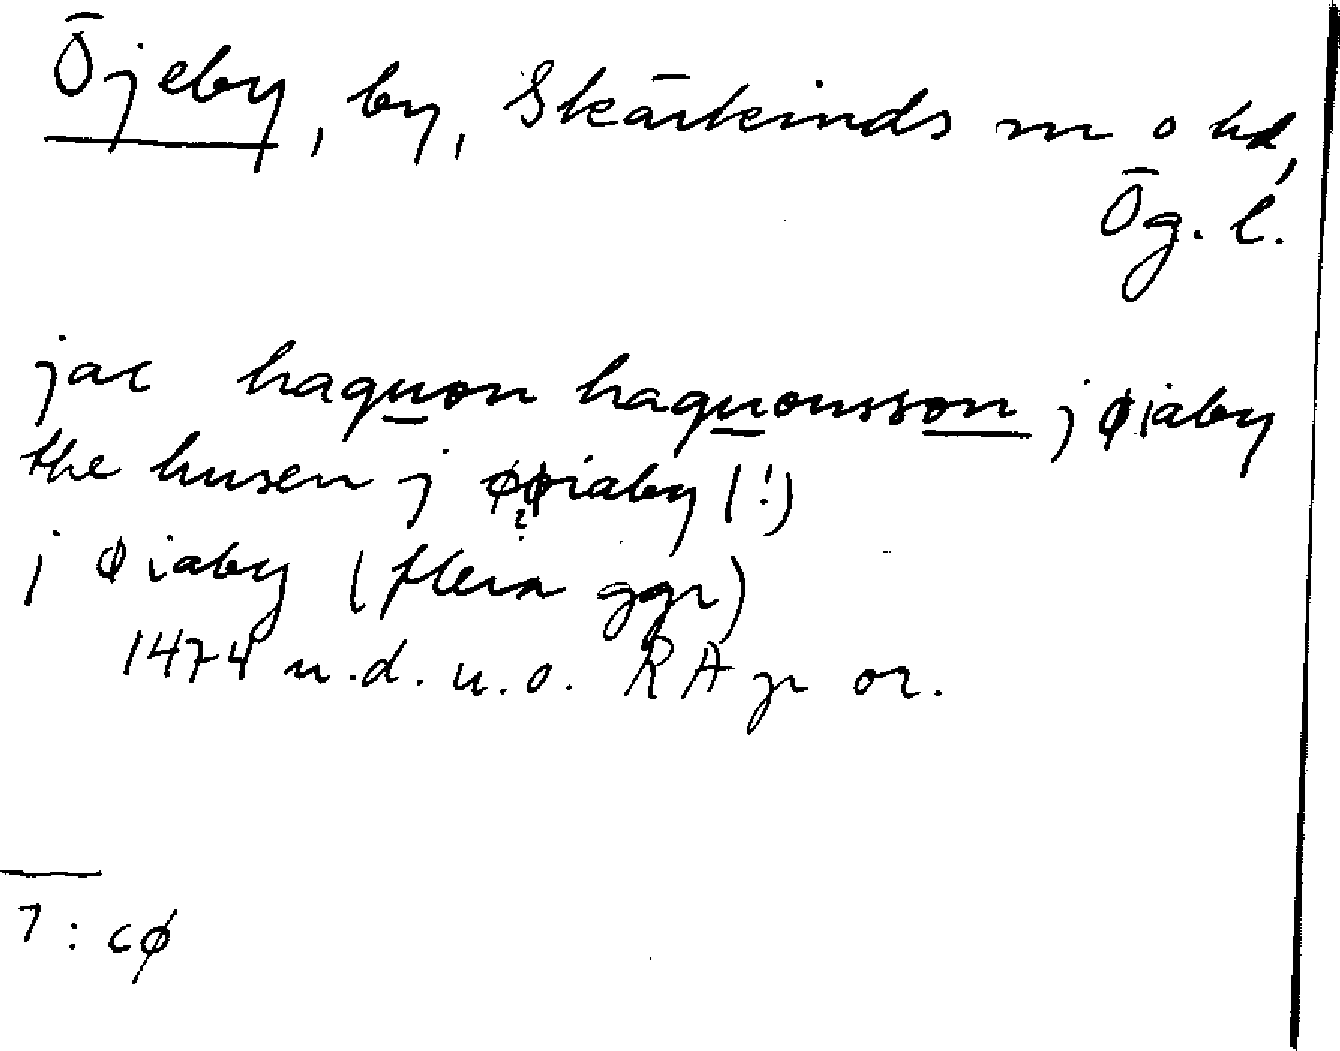 Öjeby, by, Skärkinds sn o hd,
Ög. l.
jac haquon haquonsson j øiaby
the husen j øøiaby (!)
?
j øiaby (flera ggr)
1474 u.d. u.o. RA pr or.
?: cø